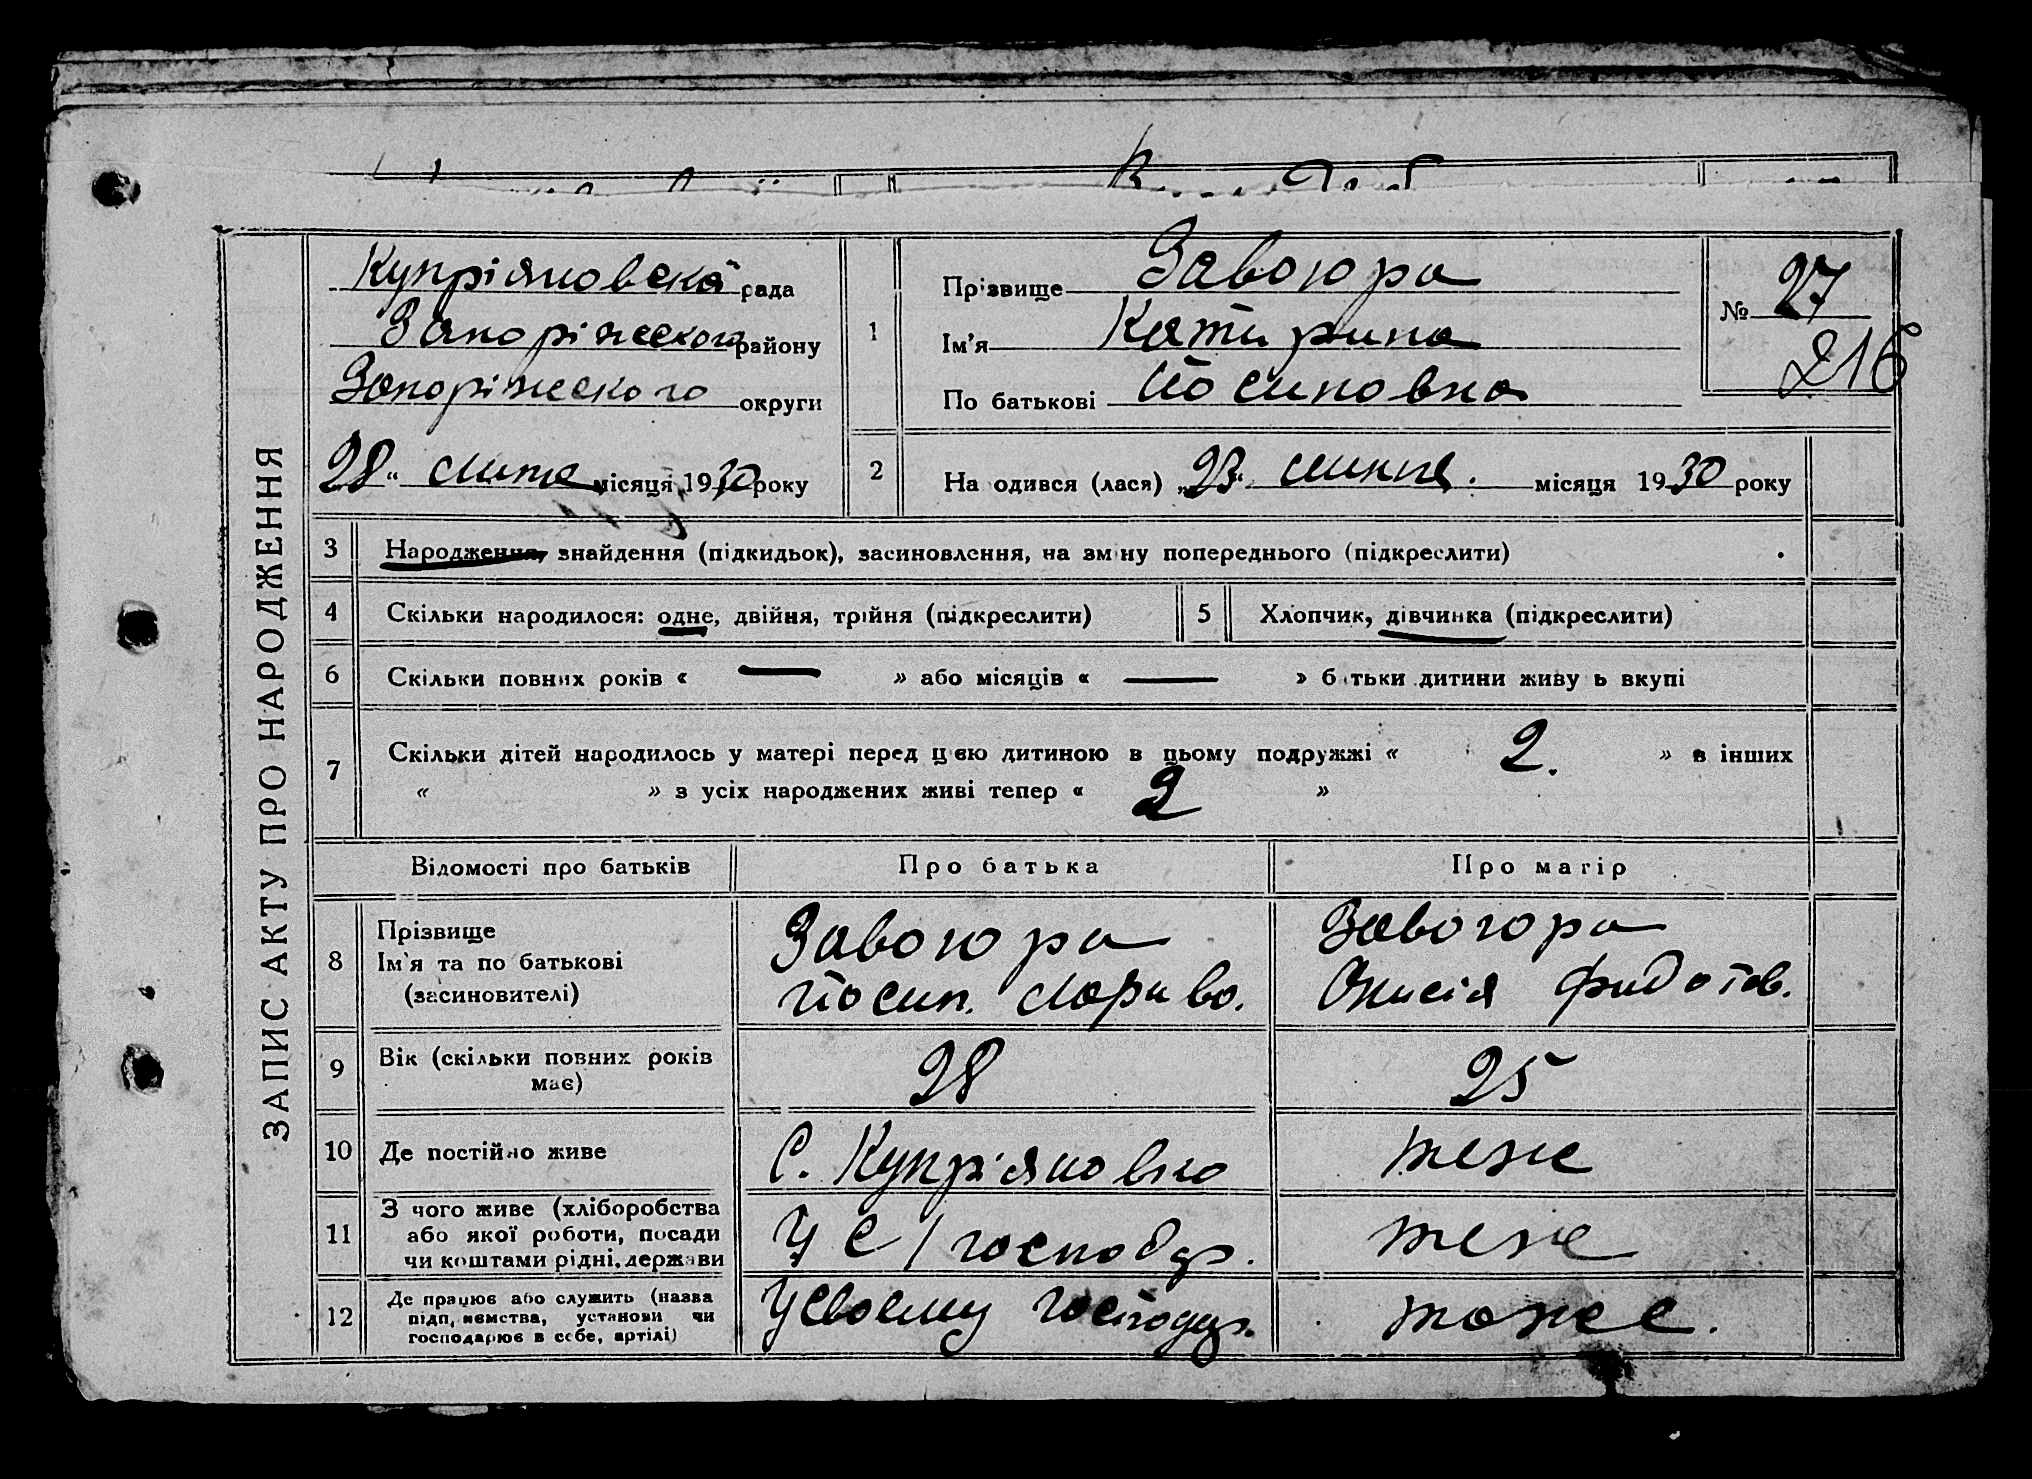 ЗАПИС АКТУ ПРО НАРОДЖЕННЯ
Купріяновська рада
Запоріжеского району
Запоріжеского округи
28 " люте місяця 1930 року
1
Прізвище Завогора
Ім'я Катирина
По батькові Йосиповна
№ 27
216
2 На одився (лася) „23" місяця 1930 року
3 Народження, знайдення (підкидьок), засиновлення, на зміну попереднього (підкреслити)
4 Скільки народилося: одне, двійня, трійня (підкреслити) 5 Хлопчик, дівчинка (підкреслити)
6 Скільки повних років « — » або місяців « — » батьки дитини живу ь вкупі
7 Скільки дітей народилось у матері перед цією дитиною в цьому подружжі « 2. » в інших
« » з усіх народжених живі тепер « 2 »
Відомості про батьків Про батька Про матір
8 Прізвище
Ім'я та по батькові
(засиновителі)
Завогора
Йосип. Лариво.
Завогора
Фидотов.
9 Вік (скільки повних років
має)
28
25
10 Де постійно живе С. Купріяновка теже
11 З чого живе (хліборобства
або якої роботи, посади
чи коштами рідні, держави
У С/господр.
теже
12 Де працює або служить (назва
підп,иємства, установи чи
господарює в себе, артілі)
У своєму господр.
тоже.